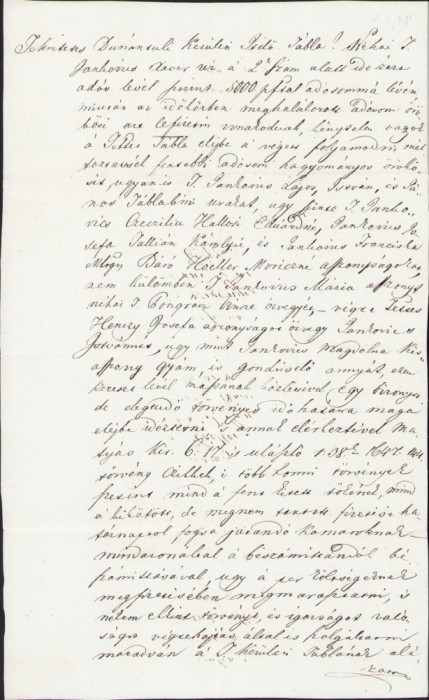 Tekintetes Dunántuli Kerületi Itélő Tábla! Néhai T.
Jankovics úr a 2ik szám alatt ide zárt
adós levél szerint 5000 pftal adósommá lévén
miután az időközben meghalálozott adósom örö-
kösei azt lefizetni vonakodnak, kénytelen vagyok
a Tettes Tábla elejbe a véges folyamodni mél-
fentebbi adósom hagyományos örökö-
seit, ugyan is T. Jankovics Lajos, István, és Já-
nos Táblabiró urakat, ugy szinte T. Janko-
vics Czeczilia Hallósi Eduárdné, Jankovics Jo-
sefa Tallián Károlyné, és Jankovics Francziska
Báró Moriczné asszonyságokat
nem külömben T Jankovics Mária asszonyt
néhai T. Gongrán Imre özvegyét, végre Tettes
Josefa asszonyságot özvegy Jankovics
Istvánnét, ugy mint Jankovics Magdolna Kis-
asszony gyám és gondviselő annyát, ezen
kereset level mássának közlésével, egy bizonyos
de elegendő törvényes idő határra maga
elejbe idéztetni s annak elérkeztével Má-
tyás Kir. 6. 17. 1. 38ik 1647. 144.
törvény czikkek, s több honni törvények
szerint mind a fent tett tőkének, mind
a kikötött, de meg nem tartott fizetési ha-
tárnaptól fogva járandó kamatoknak
mindazonáltal a beszámitandók bé
számittásával, ugy a per költségeknek
megfizetésében megmarasztani, s
nekem illendő törvényt, és igazságot való-
ságos végrehajtás által is szolgáltatni
maradván a T. kerületi Táblának alá-
zatos